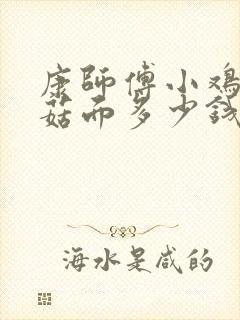 康師傅小鸡
菇面多少钱
海水是咸的